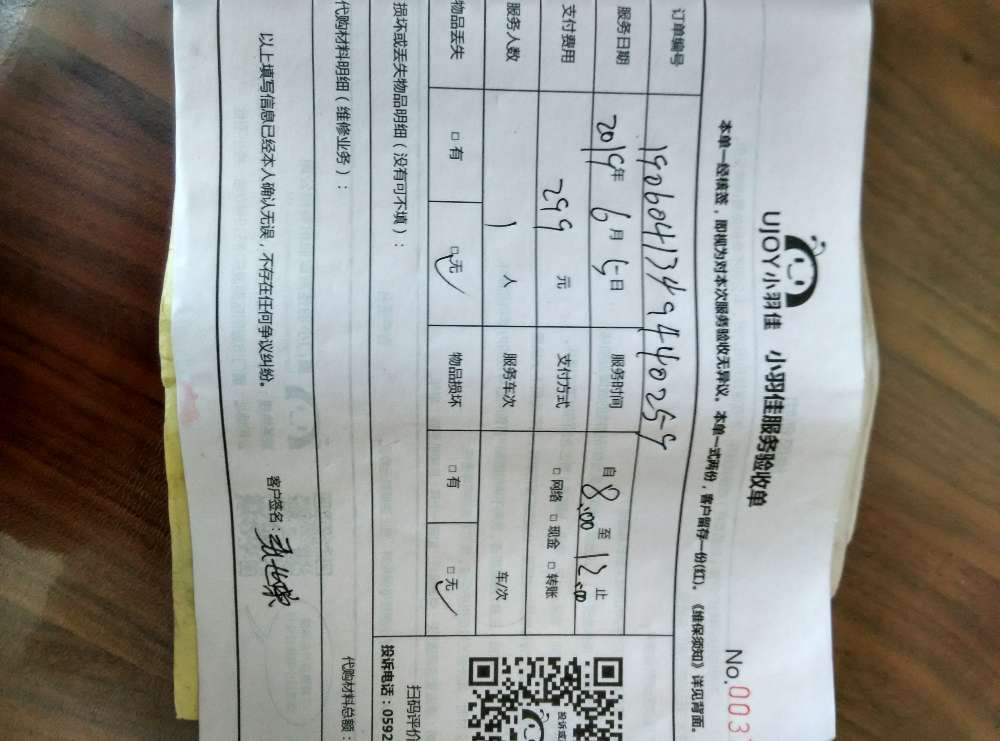 UJOY小羽佳 小羽佳服务验收单
No.003
本单一经核签，即视为对本次服务验收无异议。本单一式两份，客户留存一份(红)。《维保须知》详见背面。
订单编号 1906041349440259
服务日期 2019年 6月 5日 服务时间 自 8:00 至 12:00 止
支付费用 299 元 支付方式 □网络 □现金 □转账
服务人数 1 人 服务车次 车/次
物品丢失 □有 □无✓ 物品损坏 □有 □无✓
损坏或丢失物品明细（没有可不填）：
投诉或
扫码评价
投诉电话：0592
代购材料明细（维修业务）：
代购材料总额：
以上填写信息已经本人确认无误，不存在任何争议纠纷。 客户签名：